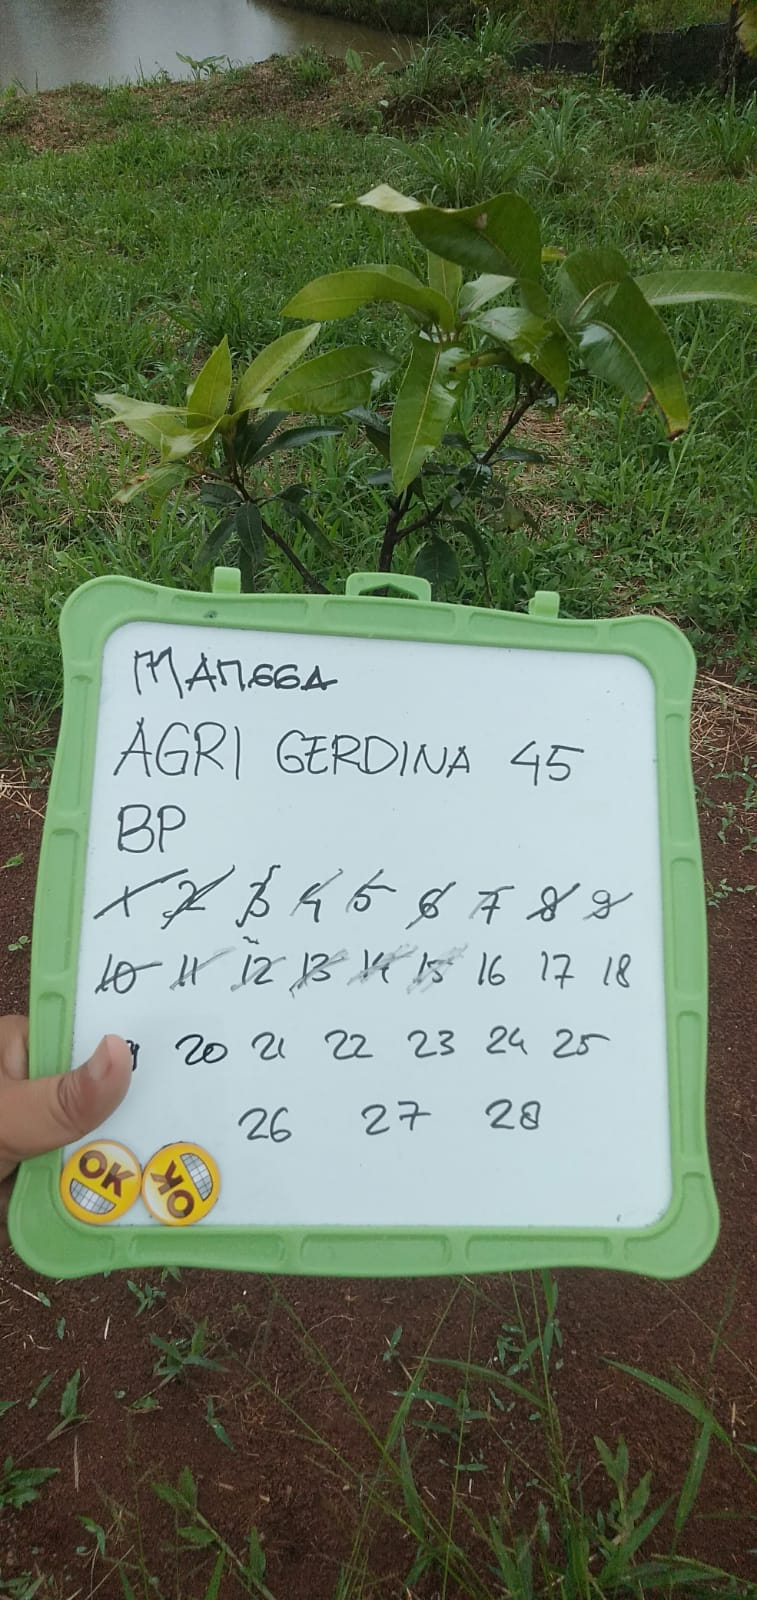 MANGGA
AGRI GERDINA 45
BP
1 2 3 4 5 6 7 8 9
10 11 12 13 14 15 16 17 18
20 21 22 23 24 25
26 27 28
OK OK